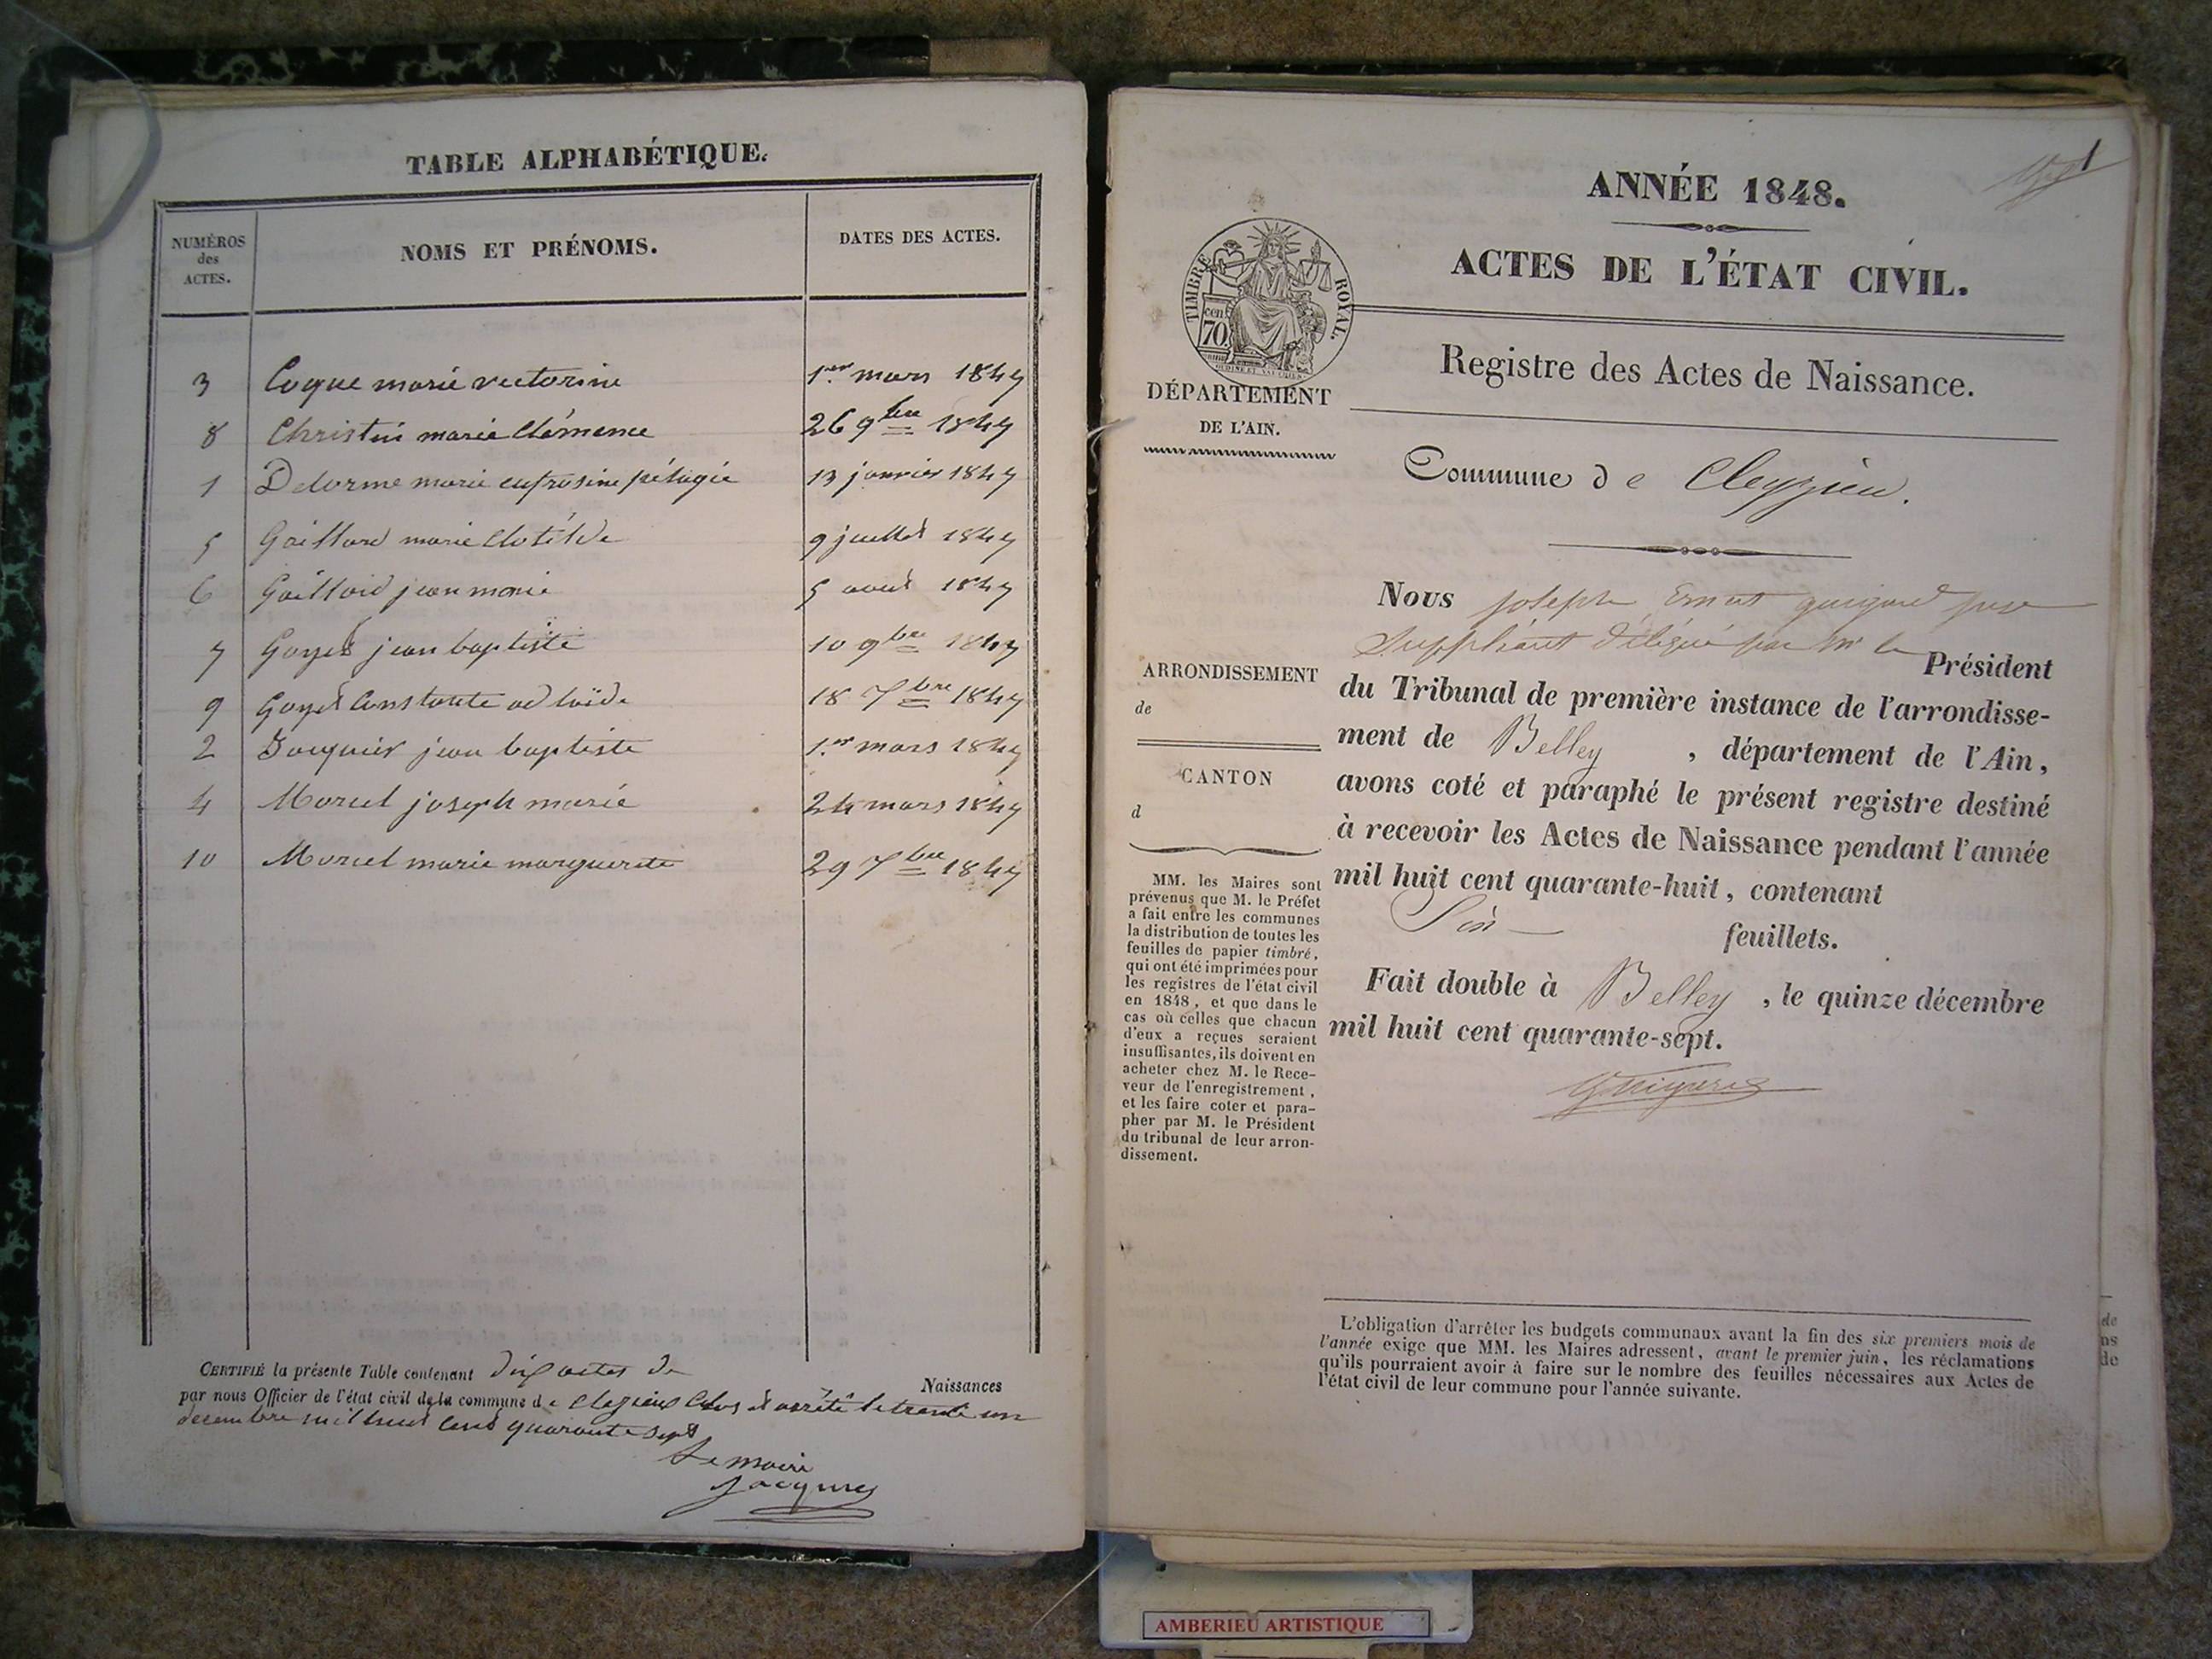 TABLE ALPHABÉTIQUE.
NUMÉROS
des
ACTES.
NOMS ET PRÉNOMS.
DATES DES ACTES.
3 Coque marie victorine 1.er mars 1847
8 Christin marie Clémence 26 9bre 1847
1 Delorme marie eufrosine pélagie 13 janvier 1847
5 Gaillard marie Clotilde 9 juillet 1847
6 Gaillard jean marie 5 aout 1847
7 Goyet jean baptiste 10 9bre 1847
9 Goyet Constante adlaïde 18 7bre 1847
2 Jacquier jean baptiste 1.er mars 1847
4 Morcel joseph marie 24 mars 1847
10 Morcel marie marguerite 29 7bre 1847
CERTIFIÉ la présente Table contenant dix actes de
Naissances
par nous Officier de l'état civil de la commune de Cleyzieu Clos et arrêté le trente un
decembre mil huit cent quarante sept
Le maire
Jacques
ANNÉE 1848.
1
ACTES DE L'ÉTAT CIVIL.
TIMBRE ROYAL.
cen
70
Registre des Actes de Naissance.
DÉPARTEMENT
DE L'AIN.
Commune de Cleyzieu.
Nous joseph Ernest guigard juge
Suppléant délégué par Mr le Président
ARRONDISSEMENT
de
du Tribunal de première instance de l'arrondisse-
ment de Belley , département de l'Ain,
CANTON
d
avons coté et paraphé le présent registre destiné
à recevoir les Actes de Naissance pendant l'année
mil huit cent quarante-huit, contenant
Six feuillets.
Fait double à Belley , le quinze décembre
mil huit cent quarante-sept.
MM. les Maires sont
prévenus que M. le Préfet
a fait entre les communes
la distribution de toutes les
feuilles de papier timbré,
qui ont été imprimées pour
les registres de l'état civil
en 1848, et que dans le
cas où celles que chacun
d'eux a reçues seraient
insuffisantes, ils doivent en
acheter chez M. le Rece-
veur de l'enregistrement,
et les faire coter et para-
pher par M. le Président
du tribunal de leur arron-
dissement.
L'obligation d'arrêter les budgets communaux avant la fin des six premiers mois de
l'année exige que MM. les Maires adressent, avant le premier juin, les réclamations
qu'ils pourraient avoir à faire sur le nombre des feuilles nécessaires aux Actes de
l'état civil de leur commune pour l'année suivante.
de
ns
de
AMBERIEU ARTISTIQUE